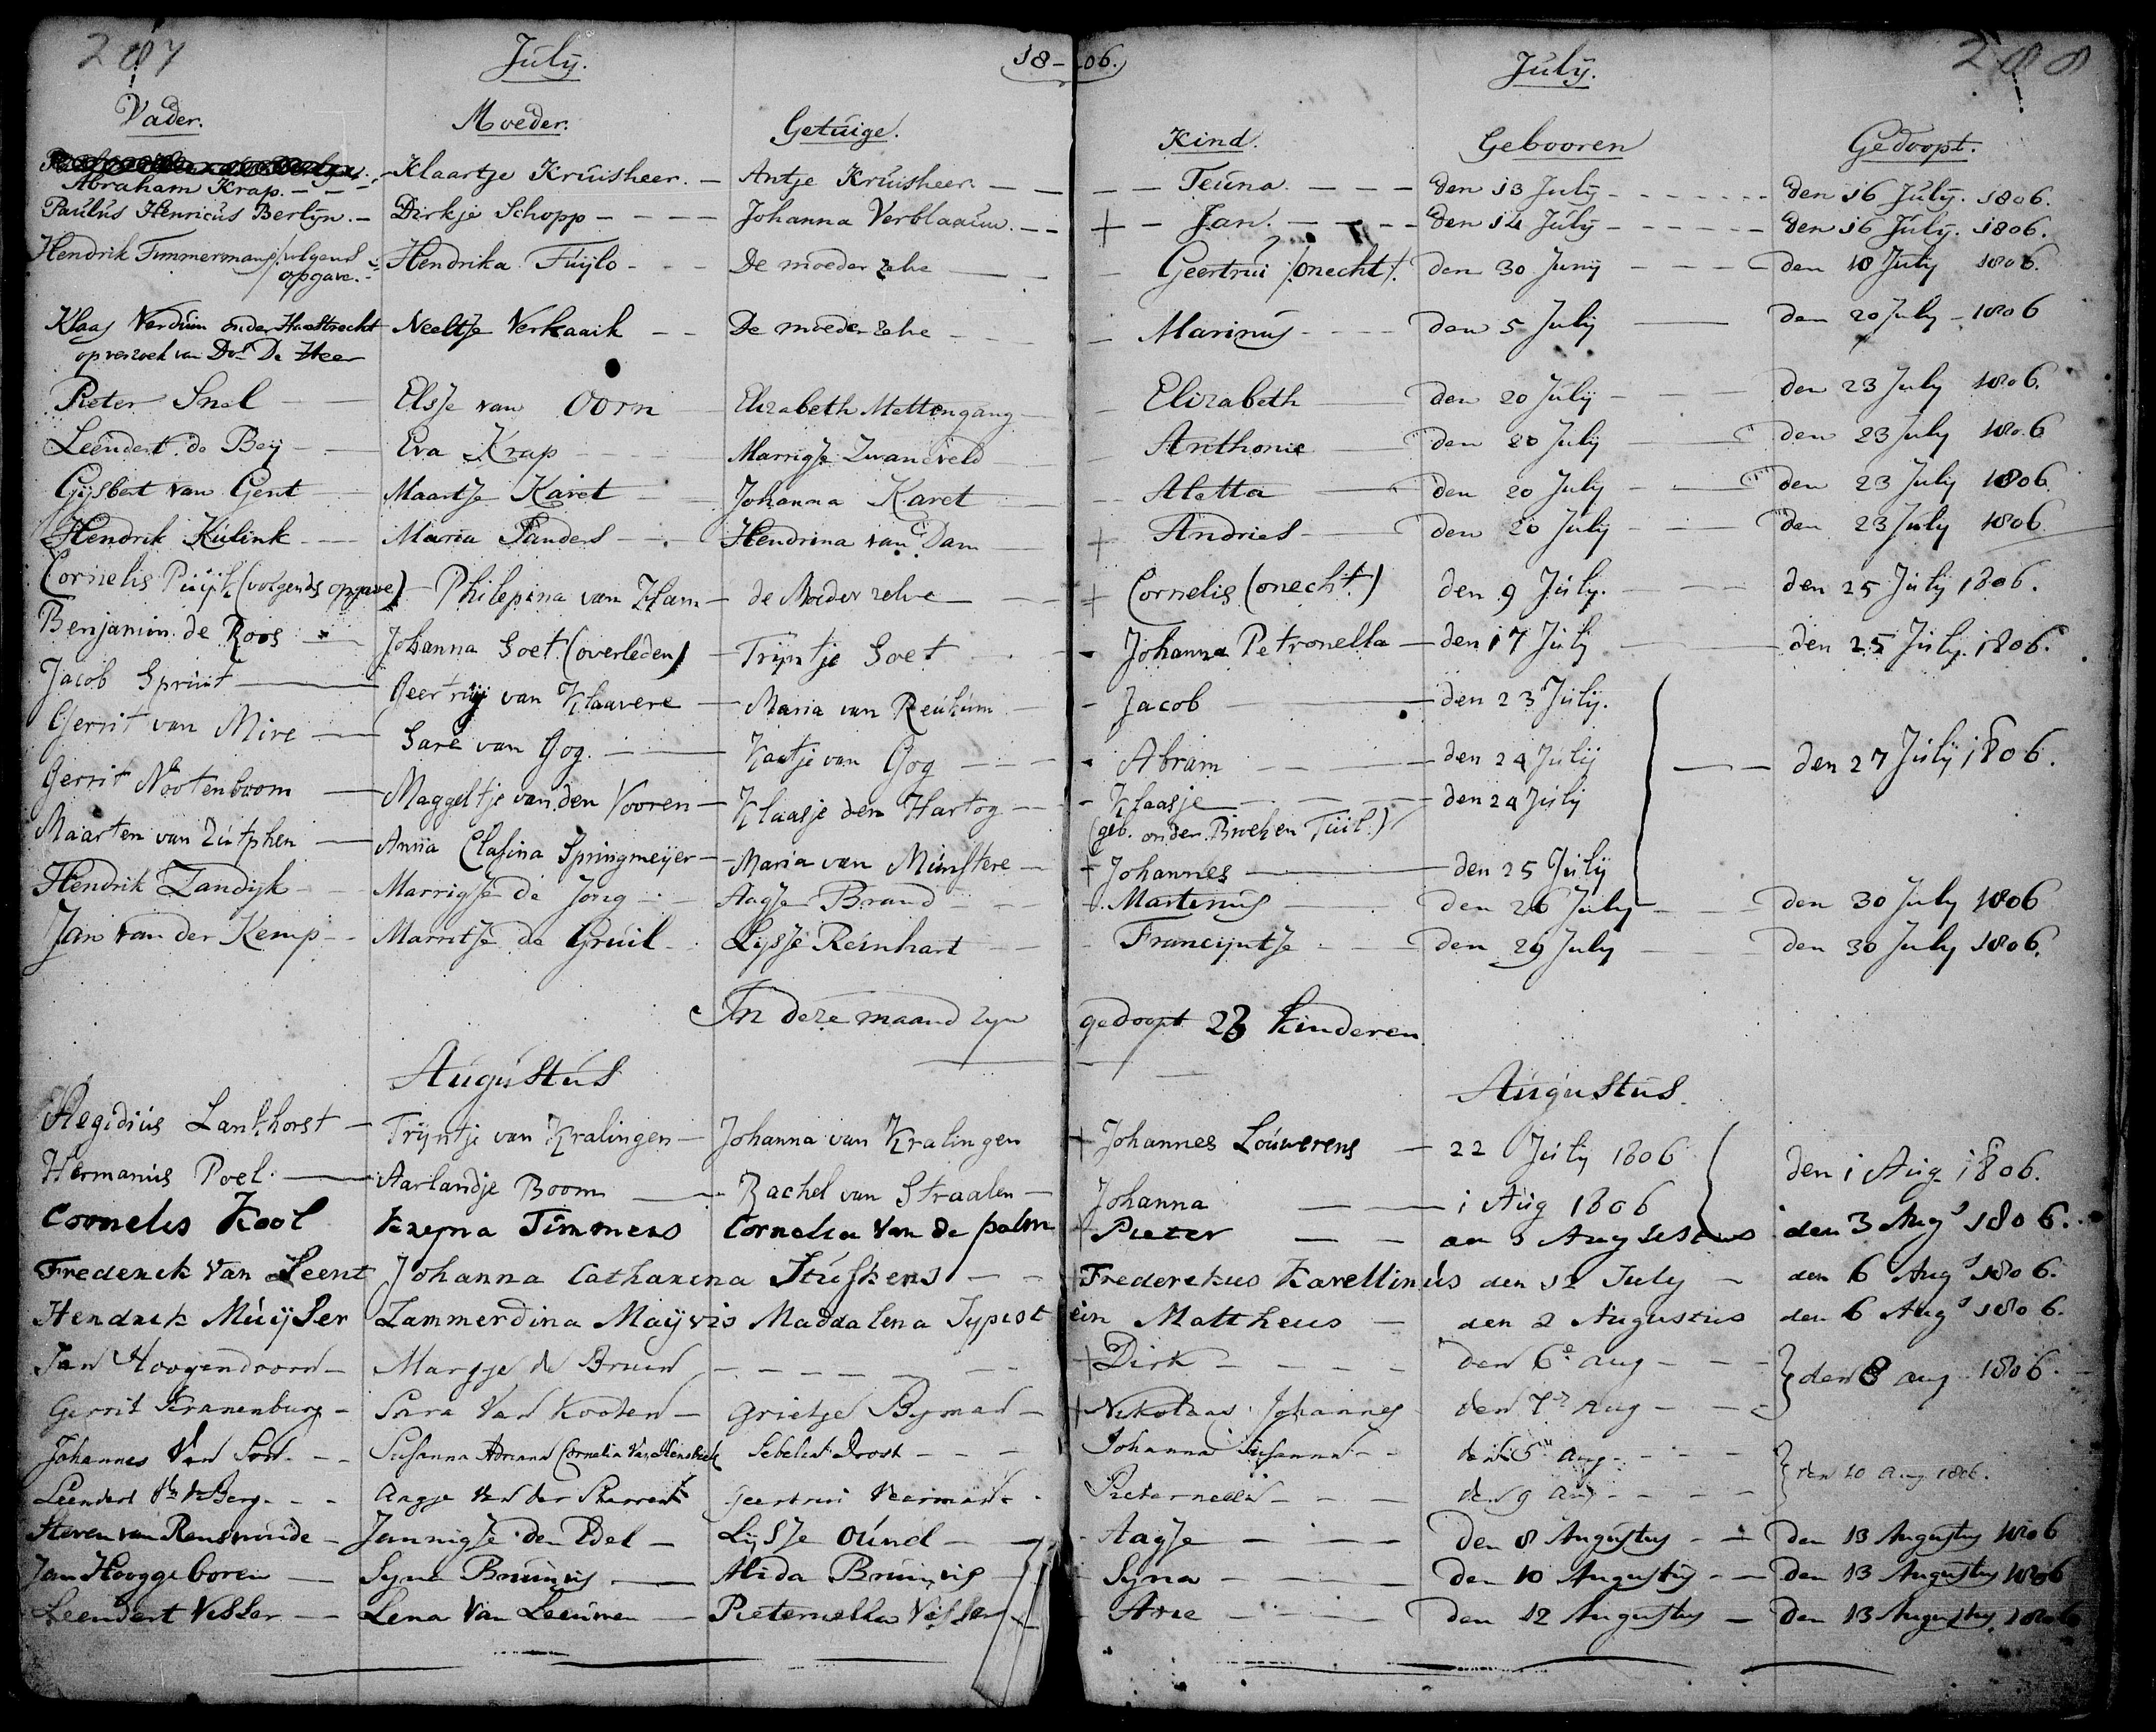 287 July. 18-06. July. 288
Vader. Moeder. Getuige. Kind. Gebooren Gedoopt.
Abraham Krap. - Klaartje Kruisheer. - Antje Kruisheer. - Teuna. - den 13 July - den 16 July. 1806.
Paulus Henricus Berlyn. - Dirkje Schopp - Johanna Verblaauw. - + - Jan. - den 14 July - den 16 July. 1806.
Hendrik Timmermans /:volgens Hendrika Tuylo - De moeder zelve - Geertrui /onecht/. den 30 Juny - den 18 July 1806.
opgave.
Klaas Verduin onder Haastrecht Neeltje Verkaaik - De moeder zelve - Marinus - den 5 July - den 20 July - 1806
op verzoek van Dos De Heer
Pieter Snel - Elsje van Oorn - Elizabeth Mettengang - Elizabeth - den 20 July - den 23 July 1806.
Leendert de Bey - Eva Krap - Marrigje Zwaneveld - Anthonie - den 20 July - den 23 July 1806
Gysbert van Gent - Maartje Karet - Johanna Karet - Aletta - den 20 July - den 23 July 1806.
Hendrik Kulink - Maria Sanders - Hendrina van Dam - + Andries - den 20 July - den 23 July 1806
Cornelis Puijk (volgends opgave) - Philepina van Ham - de Moeder zelve - + Cornelis (onecht.) den 9 July. - den 25 July 1806.
Benjamin de Roos - Johanna Soet (overleden) - Tryntje Soet - Johanna Petronella - den 17 July - den 25 July. 1806.
Jacob Spruit - Geertruy van Klaavere - Maria van Reukum - Jacob - den 23 July.
Gerrit van Mire - Sare van Gog. - Kaatje van Gog - Abram - den 24 July - den 27 July 1806.
Gerrit Nootenboom - Maggeltje van den Vooren - Klaasje den Hartog - Klaasje - den 24 July
(geb. onder Broek en Tuil.)
Maarten van Zutphen - Anna Clasina Springmeyer - Maria van Munstere - + Johannes - den 25 July
Hendrik Zandyk - Marrigje de Jong - Aagje Brand - Martinus - den 26 July - den 30 July 1806
Jan van der Kemp - Marritje de Gruil - Lysje Reinhart - Francyntje - den 29 July - den 30 July 1806.
In deze maand zyn gedoopt 23 kinderen
Augustus Augustus.
Aegidius Lankhorst - Tryntje van Kralingen - Johanna van Kralingen + Johannes Louwerens - 22 July 1806
Hermanus Poel. - Aarlandje Boom - Rachel van Straalen - Johanna - 1 Aug 1806 den 1 Aug 1806.
Cornelis Kool Kryna Timmers Cornelia van de palm + Pieter - den 3 Augs 1806.
Frederick van Leent Johanna Catharina Stuskens - Frederekus Karellinus den 12 July - den 6 Augs 1806.
Hendrik Muijser Lammerdina Mayvis Maddalena Typist ein Mattheus - den 2 Augustus den 6 Augs 1806.
Jan Hoogendoorn - Margje de Bruin - + Dirk - den 6e aug - den 8 aug 1806.
Gerrit Kranenburg - Sara Van Kooten - Grietje Byman - + Nikolaas Johannes den 7e Aug -
Johannes Van Son. - Susanna Adriana Cornelia Sebelia Drost - Johanna Susanna - den 5 aug -
Leendert vn d Berg - Aagje Van der Geertrui Veerman - Pieternella - den 9 aug - den 10 Aug 1806.
Steven van Renswoude - Jannigje den Edel - Lysje Ound - Aagje - den 8 Augustus - den 13 Augustus 1806
Jan Hooggeboren - Syna Bruinis - Alida Bruinis - Syna - den 10 Augustus - den 13 Augustus 1806
Leendert Visser - Lena van Leeuwen - Pieternella Visser - Arie - den 12 Augustus - den 13 Augustus. 1806